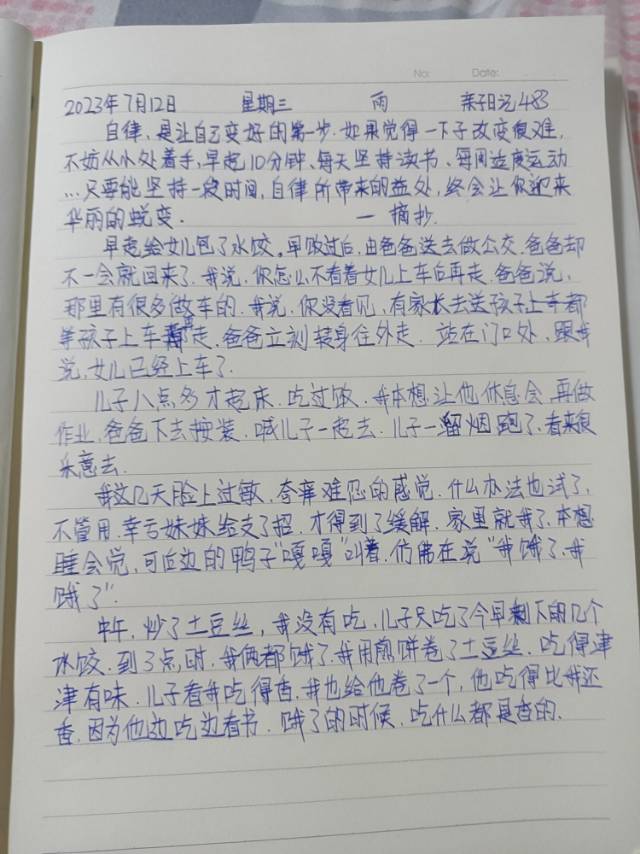 No: Date:
2023年7月12日 星期三 雨 亲子日记483
自律,是让自己变好的第一步.如果觉得一下子改变很难,
不妨从小处着手,早起10分钟、每天坚持读书、每周适度运动
...只要能坚持一段时间,自律所带来的益处,终会让你迎来
华丽的蜕变. — 摘抄.
早起给女儿包了水饺.早饭过后,由爸爸送去做公交.爸爸却
不一会就回来了.我说,你怎么不看着女儿上车后再走.爸爸说,
那里有很多做车的.我说,你没看见,有家长去送孩子上车都
等孩子上车再走.爸爸立刻转身往外走.站在门口处,跟我
说,女儿已经上车了.
儿子八点多才起床.吃过饭.我本想让他休息会,再做
作业,爸爸下去按装.喊儿子一起去.儿子一溜烟跑了.看来很
乐意去.
我这几天脸上过敏.奇痒难忍的感觉.什么办法也试了,
不管用.幸亏妹妹给支了招.才得到了缓解.家里就我了.本想
睡会觉,可后边的鸭子"嘎嘎"叫着.仿佛在说"我饿了.我
饿了".
中午,炒了土豆丝,我没有吃.儿子只吃了今早剩下的几个
水饺.到了3点时.我俩都饿了.我用煎饼卷了土豆丝.吃得津
津有味.儿子看我吃得香.我也给他卷了一个,他吃得比我还
香.因为他边吃边看书.饿了的时候.吃什么都是香的.